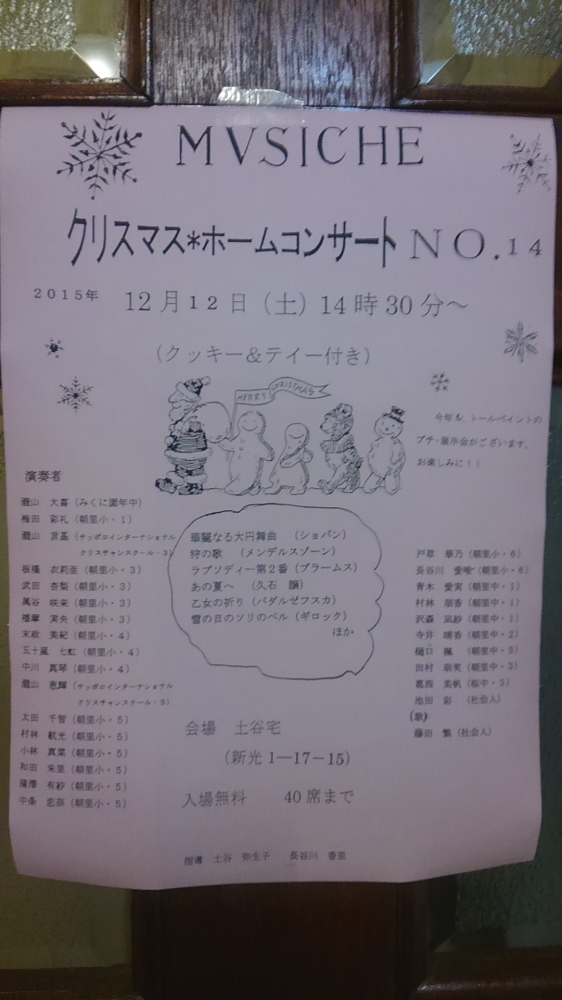 MVSICHE
クリスマス*ホームコンサート NO.14
2015年 12月12日（土）14時30分～
（クッキー＆テイー付き）
MERRY CHRISTMAS
今年も、トールペイントの
プチ・展示会がございます。
お楽しみに！！
演奏者
瀧山 大喜（みくに園年中）
梅田 彩礼（朝里小・1）
瀧山 （サッポロインターナショナル
クリスチャンスクール・3）
板橋 衣莉亜（朝里小・3）
武田 杏梨（朝里小・3）
萬谷 咲来（朝里小・3）
播摩 実央（朝里小・3）
末政 美紀（朝里小・4）
五十嵐 七虹（朝里小・4）
中川 真琴（朝里小・4）
瀧山 恵輝（サッポロインターナショナル
クリスチャンスクール・5）
太田 千智（朝里小・5）
村林 航光（朝里小・5）
小林 真菜（朝里小・5）
和田 朱里（朝里小・5）
蒲澤 有紗（朝里小・5）
中条 恋奈（朝里小・5）
華麗なる大円舞曲 （ショパン）
狩の歌 （メンデルスゾーン）
ラプソディー第2番（ブラームス）
あの夏へ （久石 譲）
乙女の祈り（バダルゼフスカ）
雪の日のソリのベル（ギロック）
ほか
戸草 華乃（朝里小・6）
長谷川 愛唯（朝里小・6）
青木 愛実（朝里中・1）
村林 朋香（朝里中・1）
沢森 凪紗（朝里中・1）
寺井 晴香（朝里中・2）
樋口 楓 （朝里中・3）
田村 萌笑（朝里中・3）
葛西 美帆（桜中・3）
池田 彩 （社会人）
（歌）
藤田 繁（社会人）
会場 土谷宅
（新光1―17－15）
入場無料 40席まで
指導 土谷 弥生子 長谷川 香里